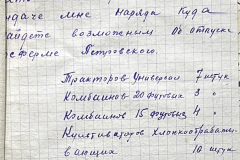 даче мне Наряда куда
айдете возможним Об отпуске
сферме Петровского.
Тракторов Универсал 7 штук
Комбаинов 20 футових 3 "
Комбаинов 15 футовых 4 "
Культиваторов Хлопкообрабаты-
вающих 10 штук